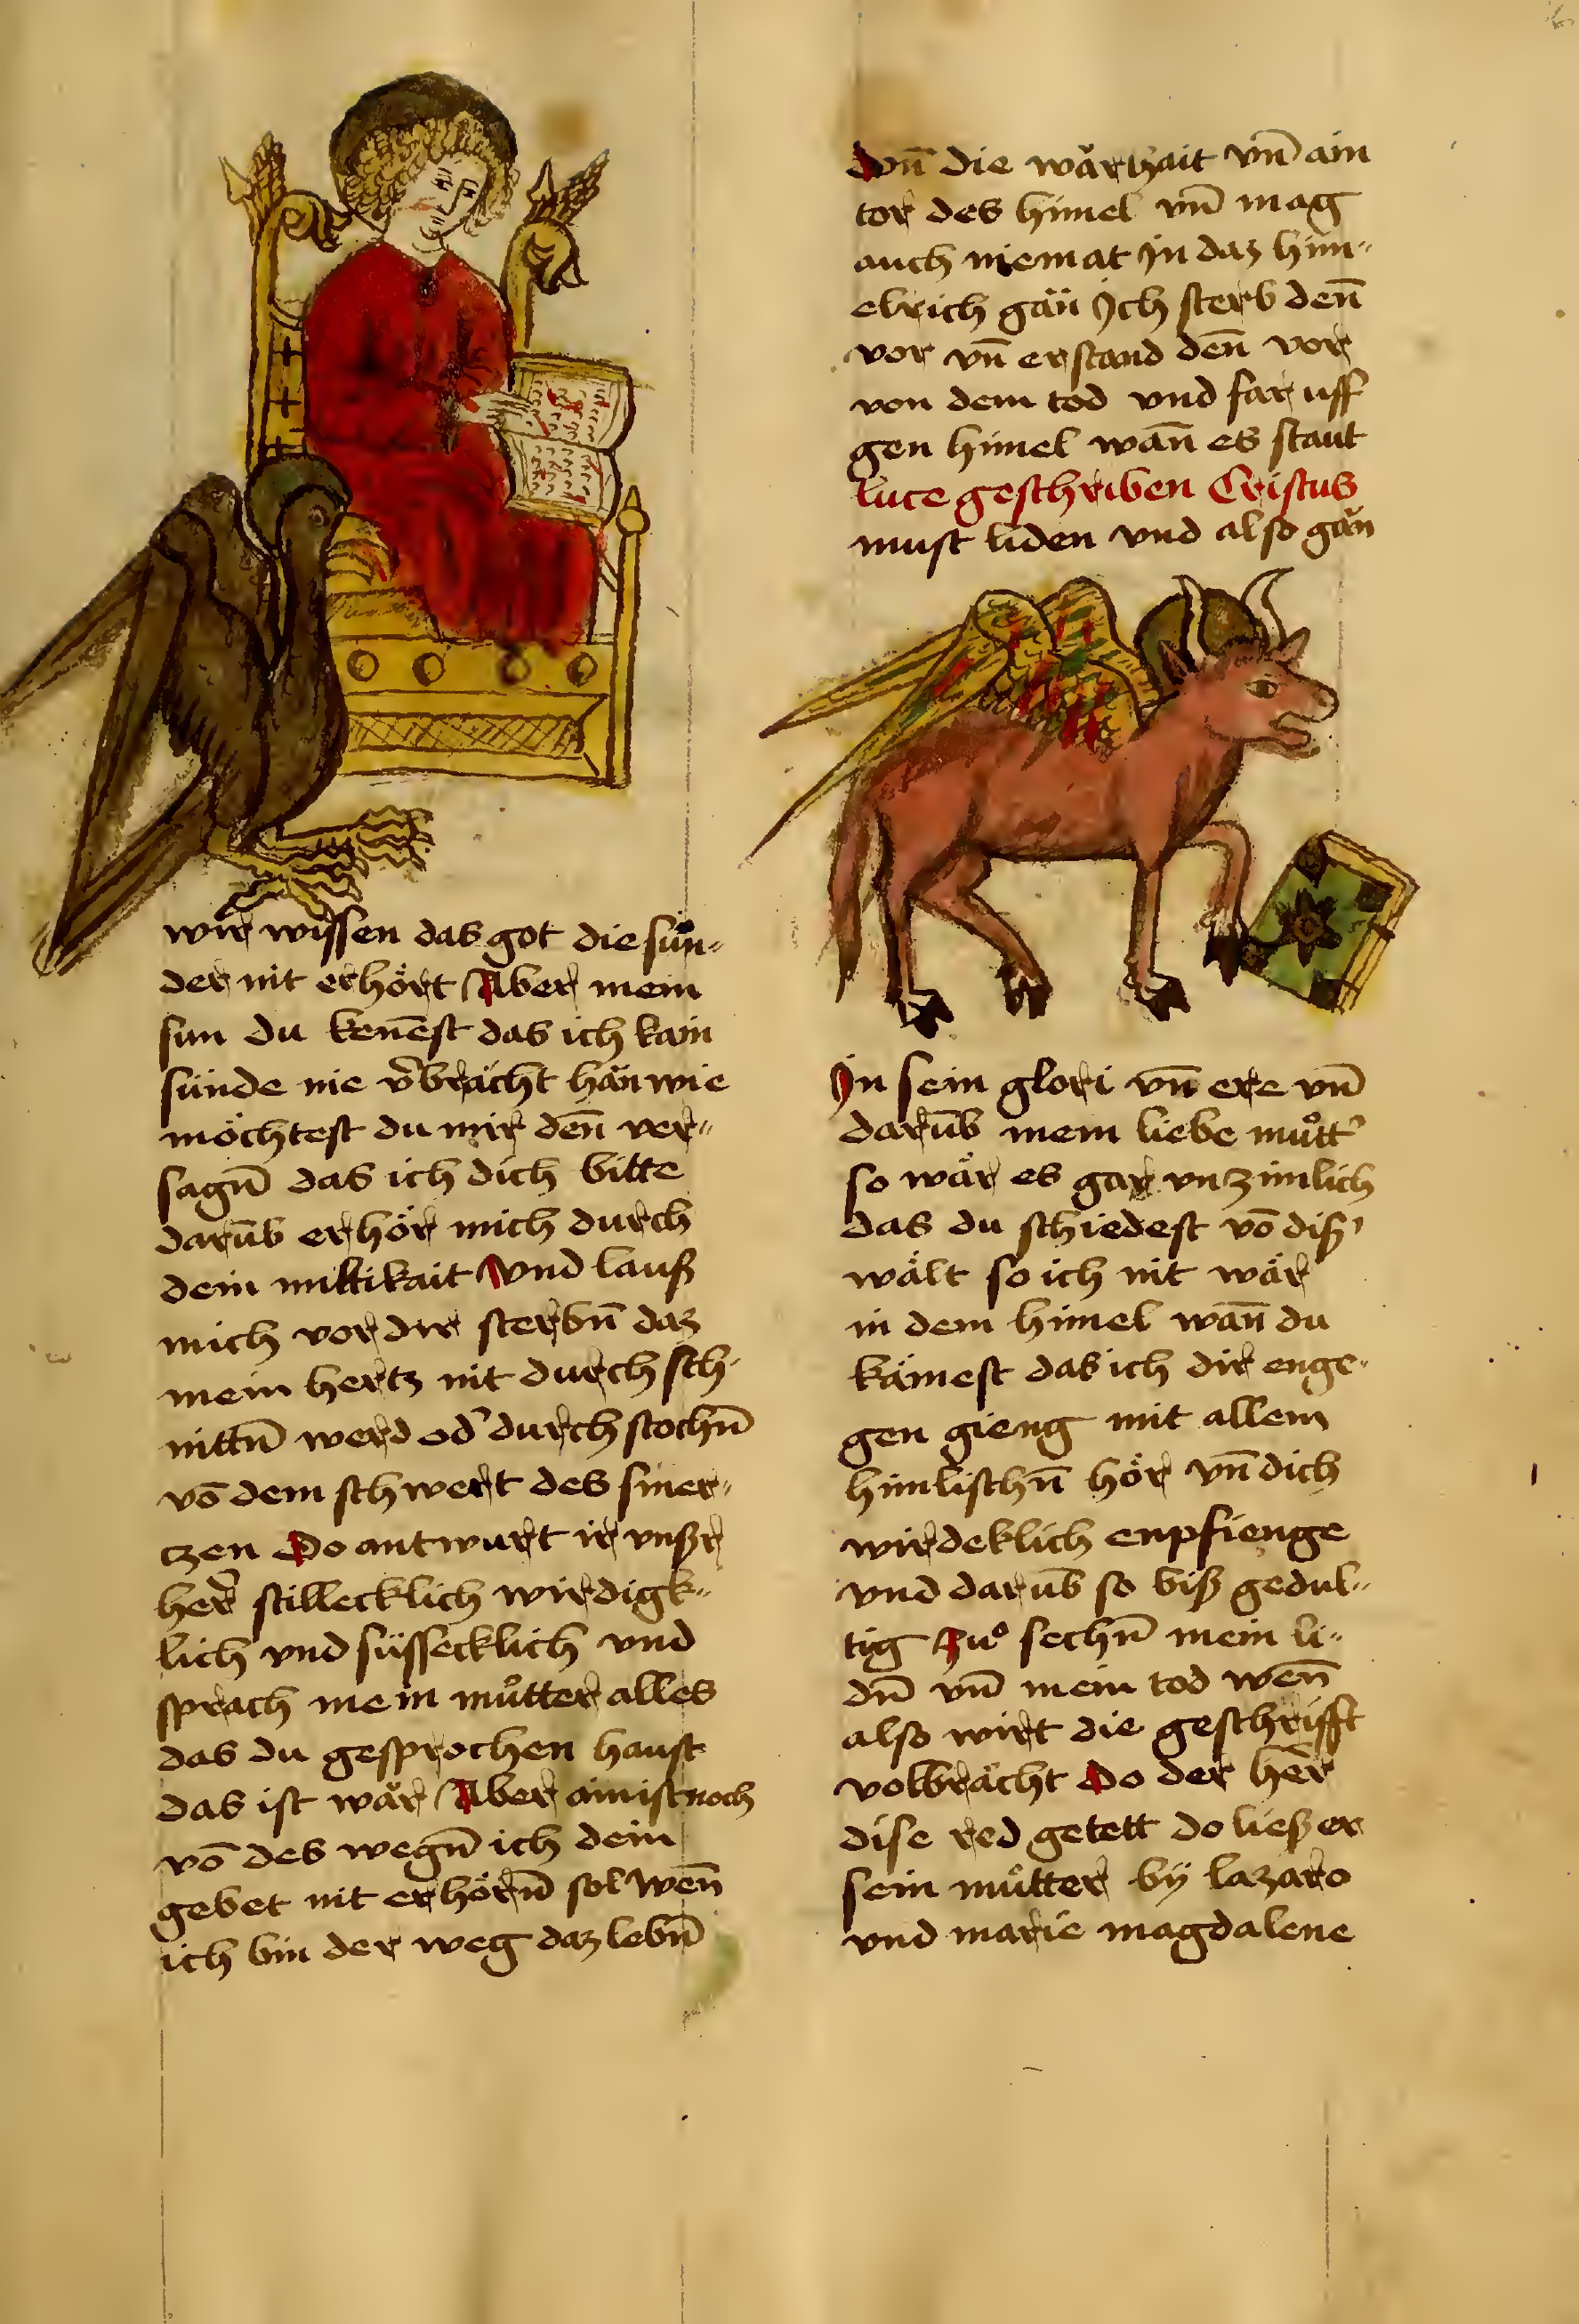 wir wissen das got die sün-
der nit erhört Aber mein
sun du kenēst das ich kain
sünde nie v̄brächt hän wie
möchtest du mir deñ ver-
sagn̄ das ich dich bitte
darūb erhör mich durch
dein miltikait Vnd lauß
mich vor dir sterbn̄ daz
mein hertz nit durch sch-
nittn̄ werd od' durchstochn̄
vō dem schwert des smer-
czen Do antwurt ir vnßr
her̄ stillecklich wirdigk-
lich vnd süssecklich vnd
sprach mein mu̇tter alles
das du gesprochen haust
das ist wär Aber ain ist noch
vō des wegn̄ ich dein
gebet nit erhörn̄ sol Wen̄
ich bin der weg daz lebn̄
Vnn̄ die wärhait vn̄ ain
tor des himel vn̄ mag
auch niemat in daz him-
elrich gän Ich sterb den̄
vor vn̄ erstand den̄ vor
von dem tod vnd far uff
gen himel wan̄ es staut
luce geschriben Cristus
must liden vnd also gän
In sein glori vn̄ ere vn̄
darūb mein liebe mů̊tt'
so wär es gar vnzimlich
das du schiedest vō diß'
wält so ich nit wär
in dem himel wan̄ du
kämest das ich dir enge-
gen gieng mit allem
himlischn̄ hör vn̄ dich
wirdeklich enpfienge
vnd darūb so biß gedul-
tig zů sechn̄ mein li-
dn̄ vn̄ mein tod wen̄
also wirt die geschrifft
volbrächt Do der her̄
dise red getett do ließ er
sein mů̊tter bÿ lazaro
vnd marie magdalene